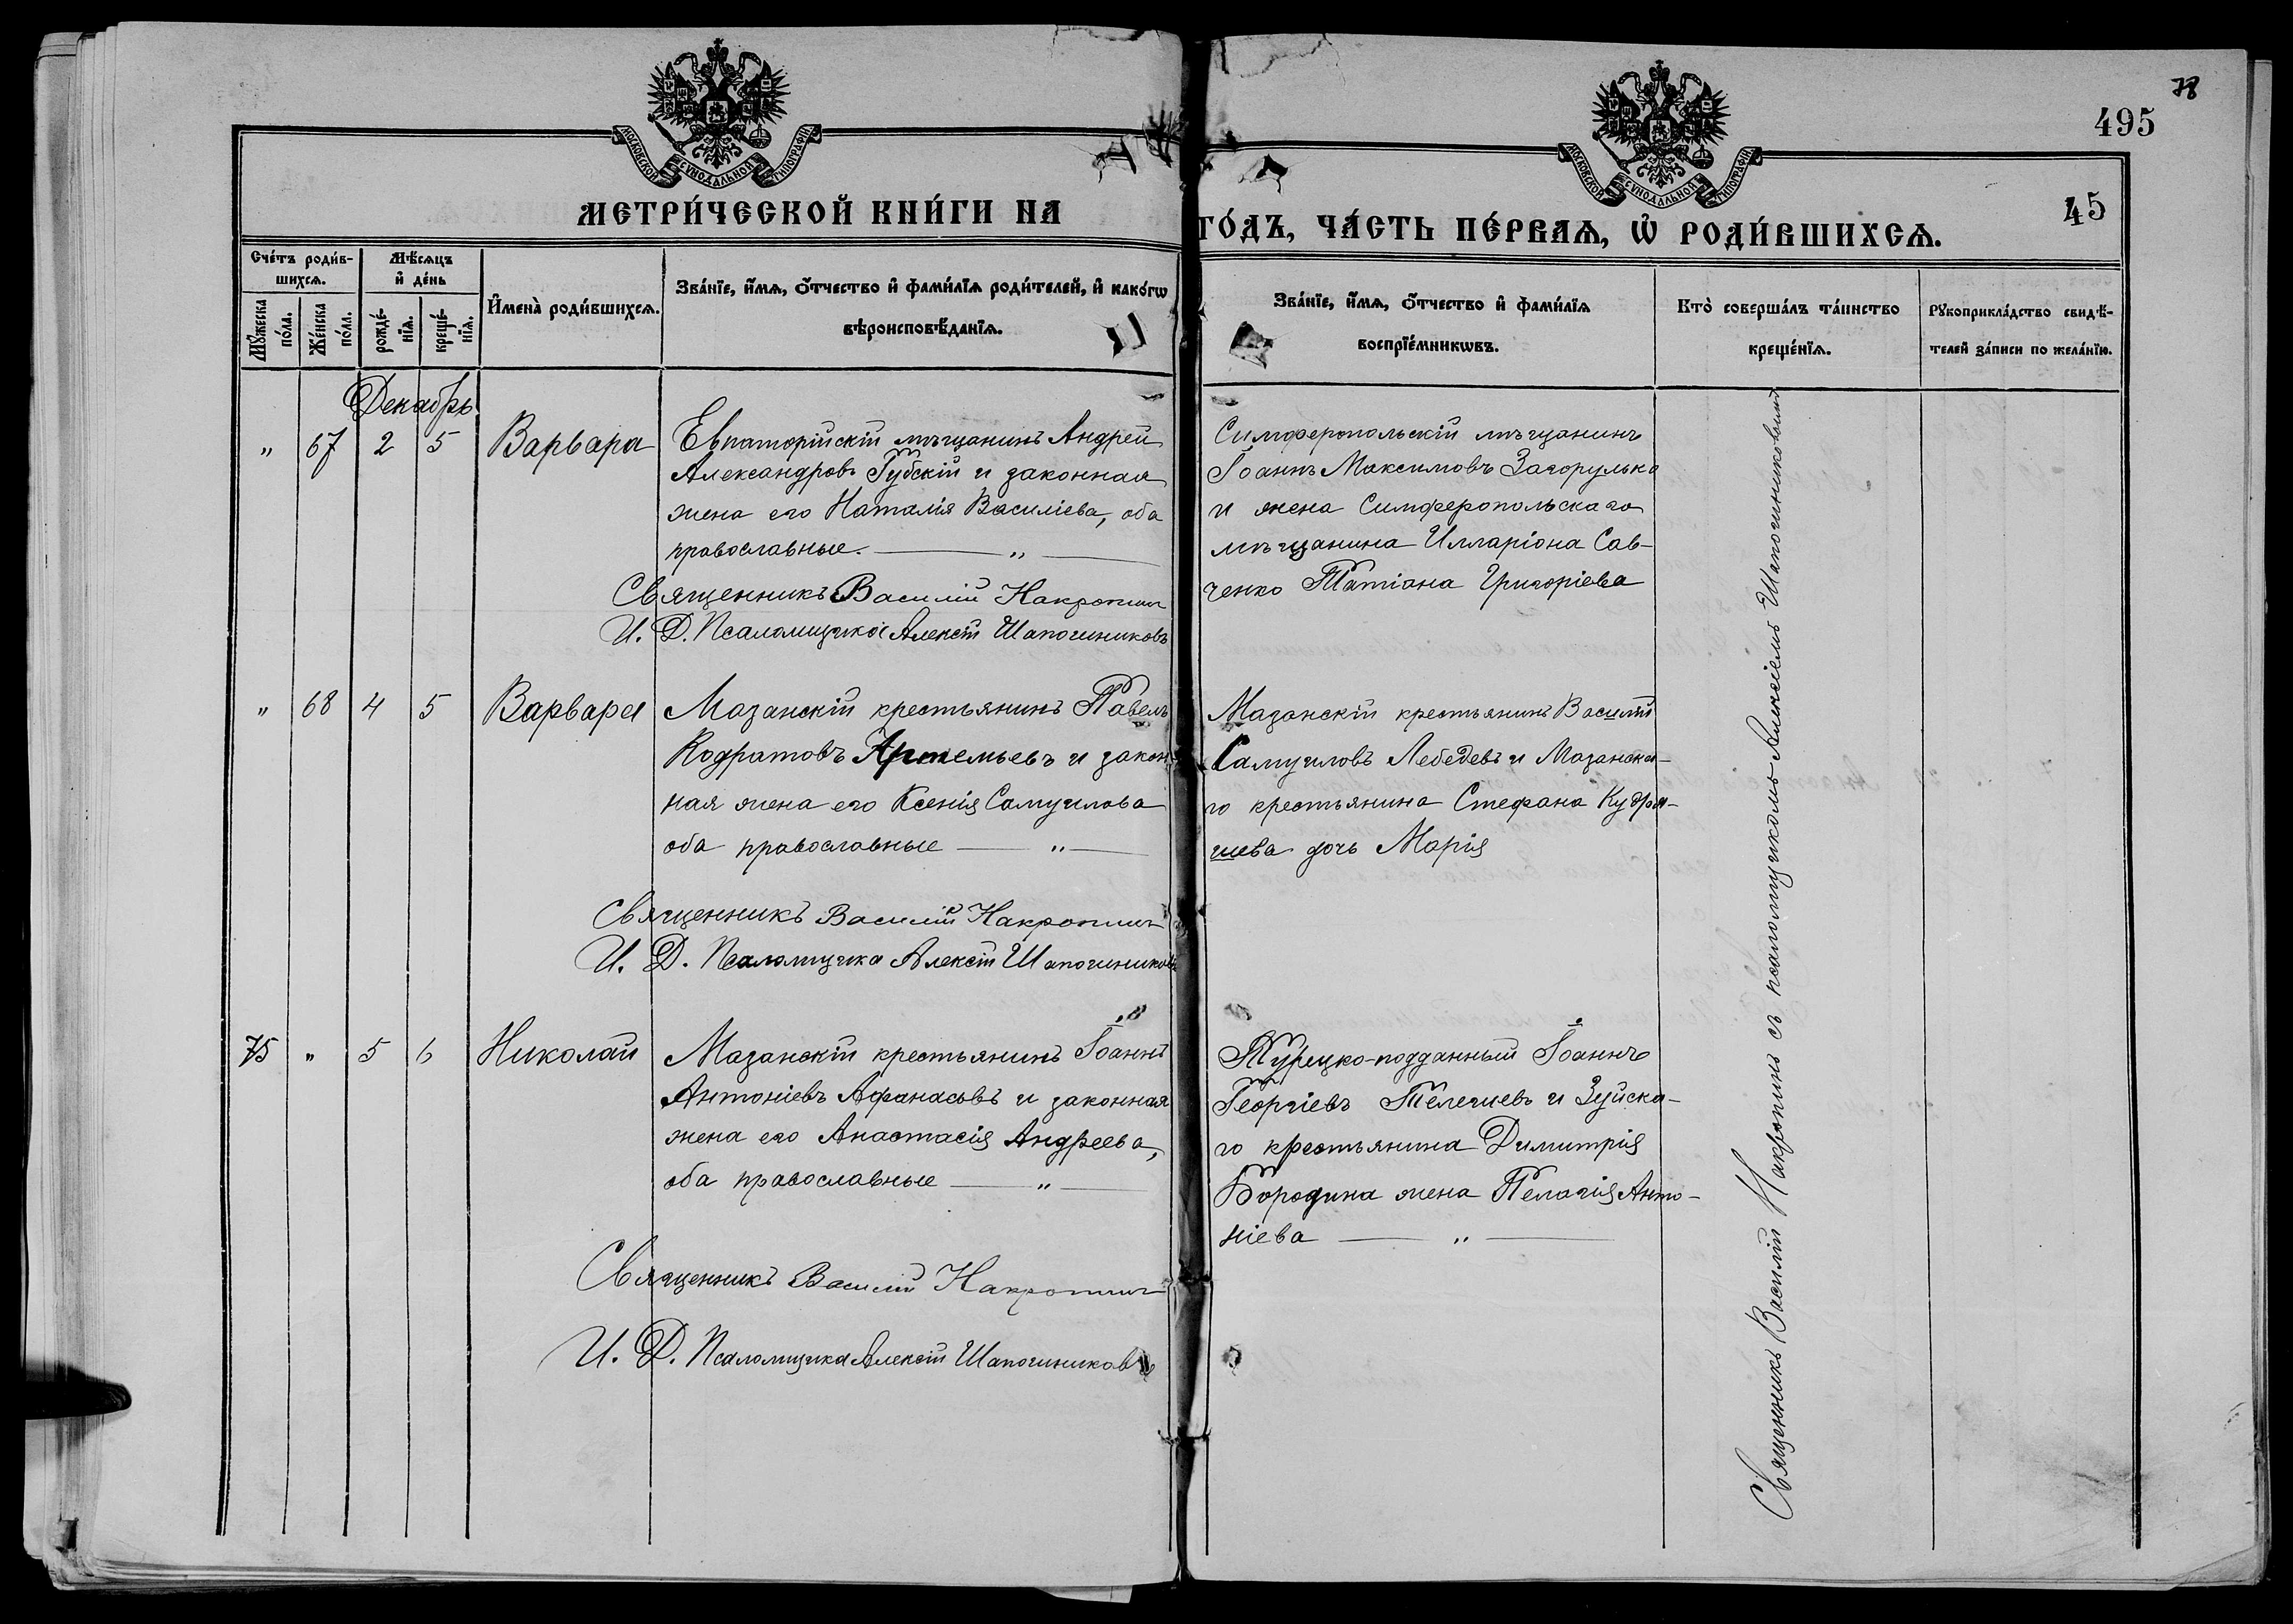 78
495
45
МОСКОВСКОЙ СѴНОДАЛЬНОЙ ТИПОГРАФІИ
МОСКОВСКОЙ СѴНОДАЛЬНОЙ ТИПОГРАФІИ
МЕТРИ́ЧЕСКОЙ КНИ́ГИ НА
ГО́ДЪ, ЧА́СТЬ ПЕ́РВАѦ, Ѡ҆ РОДИ́ВШИХСѦ.
Сче́тъ роди́в-
шихсѧ.
Мѣ́сѧцъ
и҆ де́нь
Мꙋ́жеска
по́ла.
Же́нска
по́ла.
рожде́-
нїѧ.
креще́-
нїѧ.
И҆мена̀ роди́вшихсѧ.
Зва́нїе, и҆́мѧ, ѻ҆́тчество и҆ фами́лїѧ роди́телей, и҆ како́гѡ
вѣроисповѣ́данїѧ.
Зва́нїе, и҆́мѧ, ѻ҆́тчество и҆ фами́лїѧ
воспрїе́мникѡвъ.
Кто̀ соверша́лъ та́инство
креще́нїѧ.
Рꙋкоприкла́дство свидѣ́-
телей за́писи по жела́нїю.
Декабрь
" 67 2 5 Варвара
Евпаторійскій мѣщанинъ Андрей
Александровъ Губскій и законная
жена его Наталія Василіева, оба
православные. — " —
Священникъ Василій Накропин
И. Д. Псаломщика Алексій Шапошниковъ
Симферопольскій мѣщанинъ
Іоаннъ Максимовъ Загорулько
и жена Симферопольскаго
мѣщанина Илларіона Сав-
ченко Татіана Григоріева
" 68 4 5 Варвара
Мазанскій крестьянинъ Павелъ
Кодратовъ Артемьевъ и закон-
ная жена его Ксенія Самуилова
оба православные — " —
Священникъ Василій Накропин
И. Д. Псаломщика Алексій Шапошниковъ
Мазанскій крестьянинъ Василій
Самуиловъ Лебедевъ и Мазанска-
го крестьянина Стефана Кудря-
шева дочь Марія
75 " 5 6 Николай
Мазанскій крестьянинъ Іоаннъ
Антоніевъ Афанасьевъ и законная
жена его Анастасія Андреева,
оба православные — " —
Священникъ Василій Накропин
И. Д. Псаломщика Алексій Шапошниковъ
Турецко-подданный Іоаннъ
Георгіевъ Телегиевъ и Зуйска-
го крестьянина Димитрія
Бородина жена Пелагія Анто-
ніева — " —
Священникъ Василій Накропинъ съ псаломщикомъ Алексіемъ Шапошниковымъ